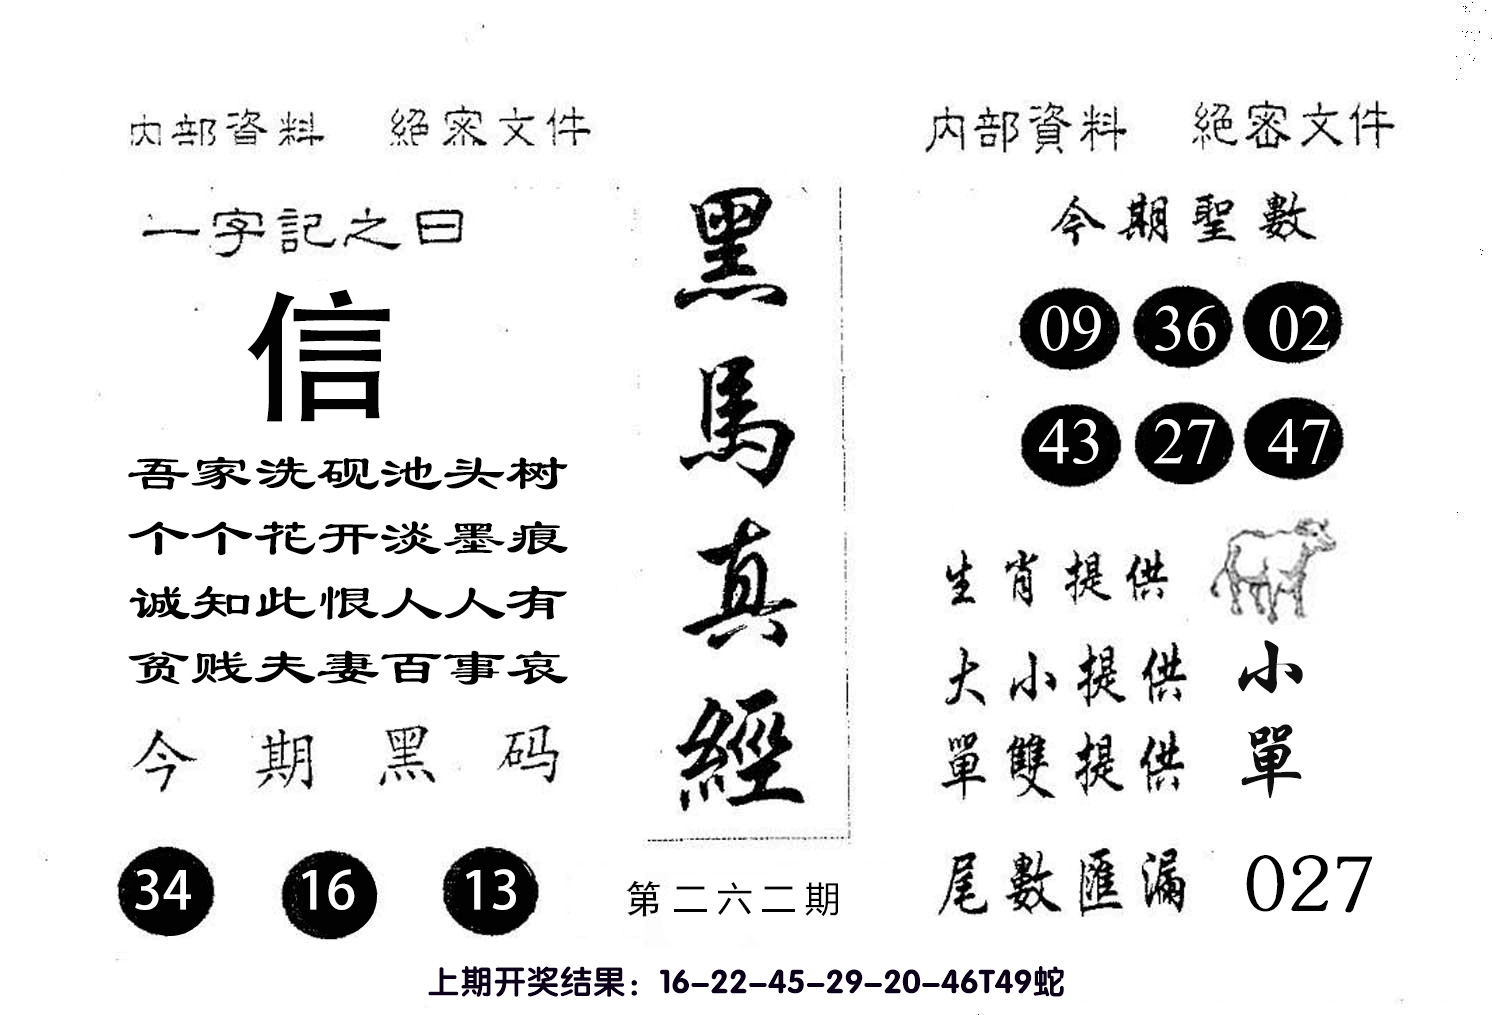 內部資料 絕密文件
一字記之曰
信
吾家洗砚池头树
个个花开淡墨痕
诚知此恨人人有
贫贱夫妻百事哀
今期黑码
34 16 13
黑馬真經
第二六二期
內部資料 絕密文件
今期聖數
09 36 02
43 27 47
生肖提供
大小提供 小
單雙提供 單
尾數匯漏 027
上期开奖结果：16-22-45-29-20-46T49蛇